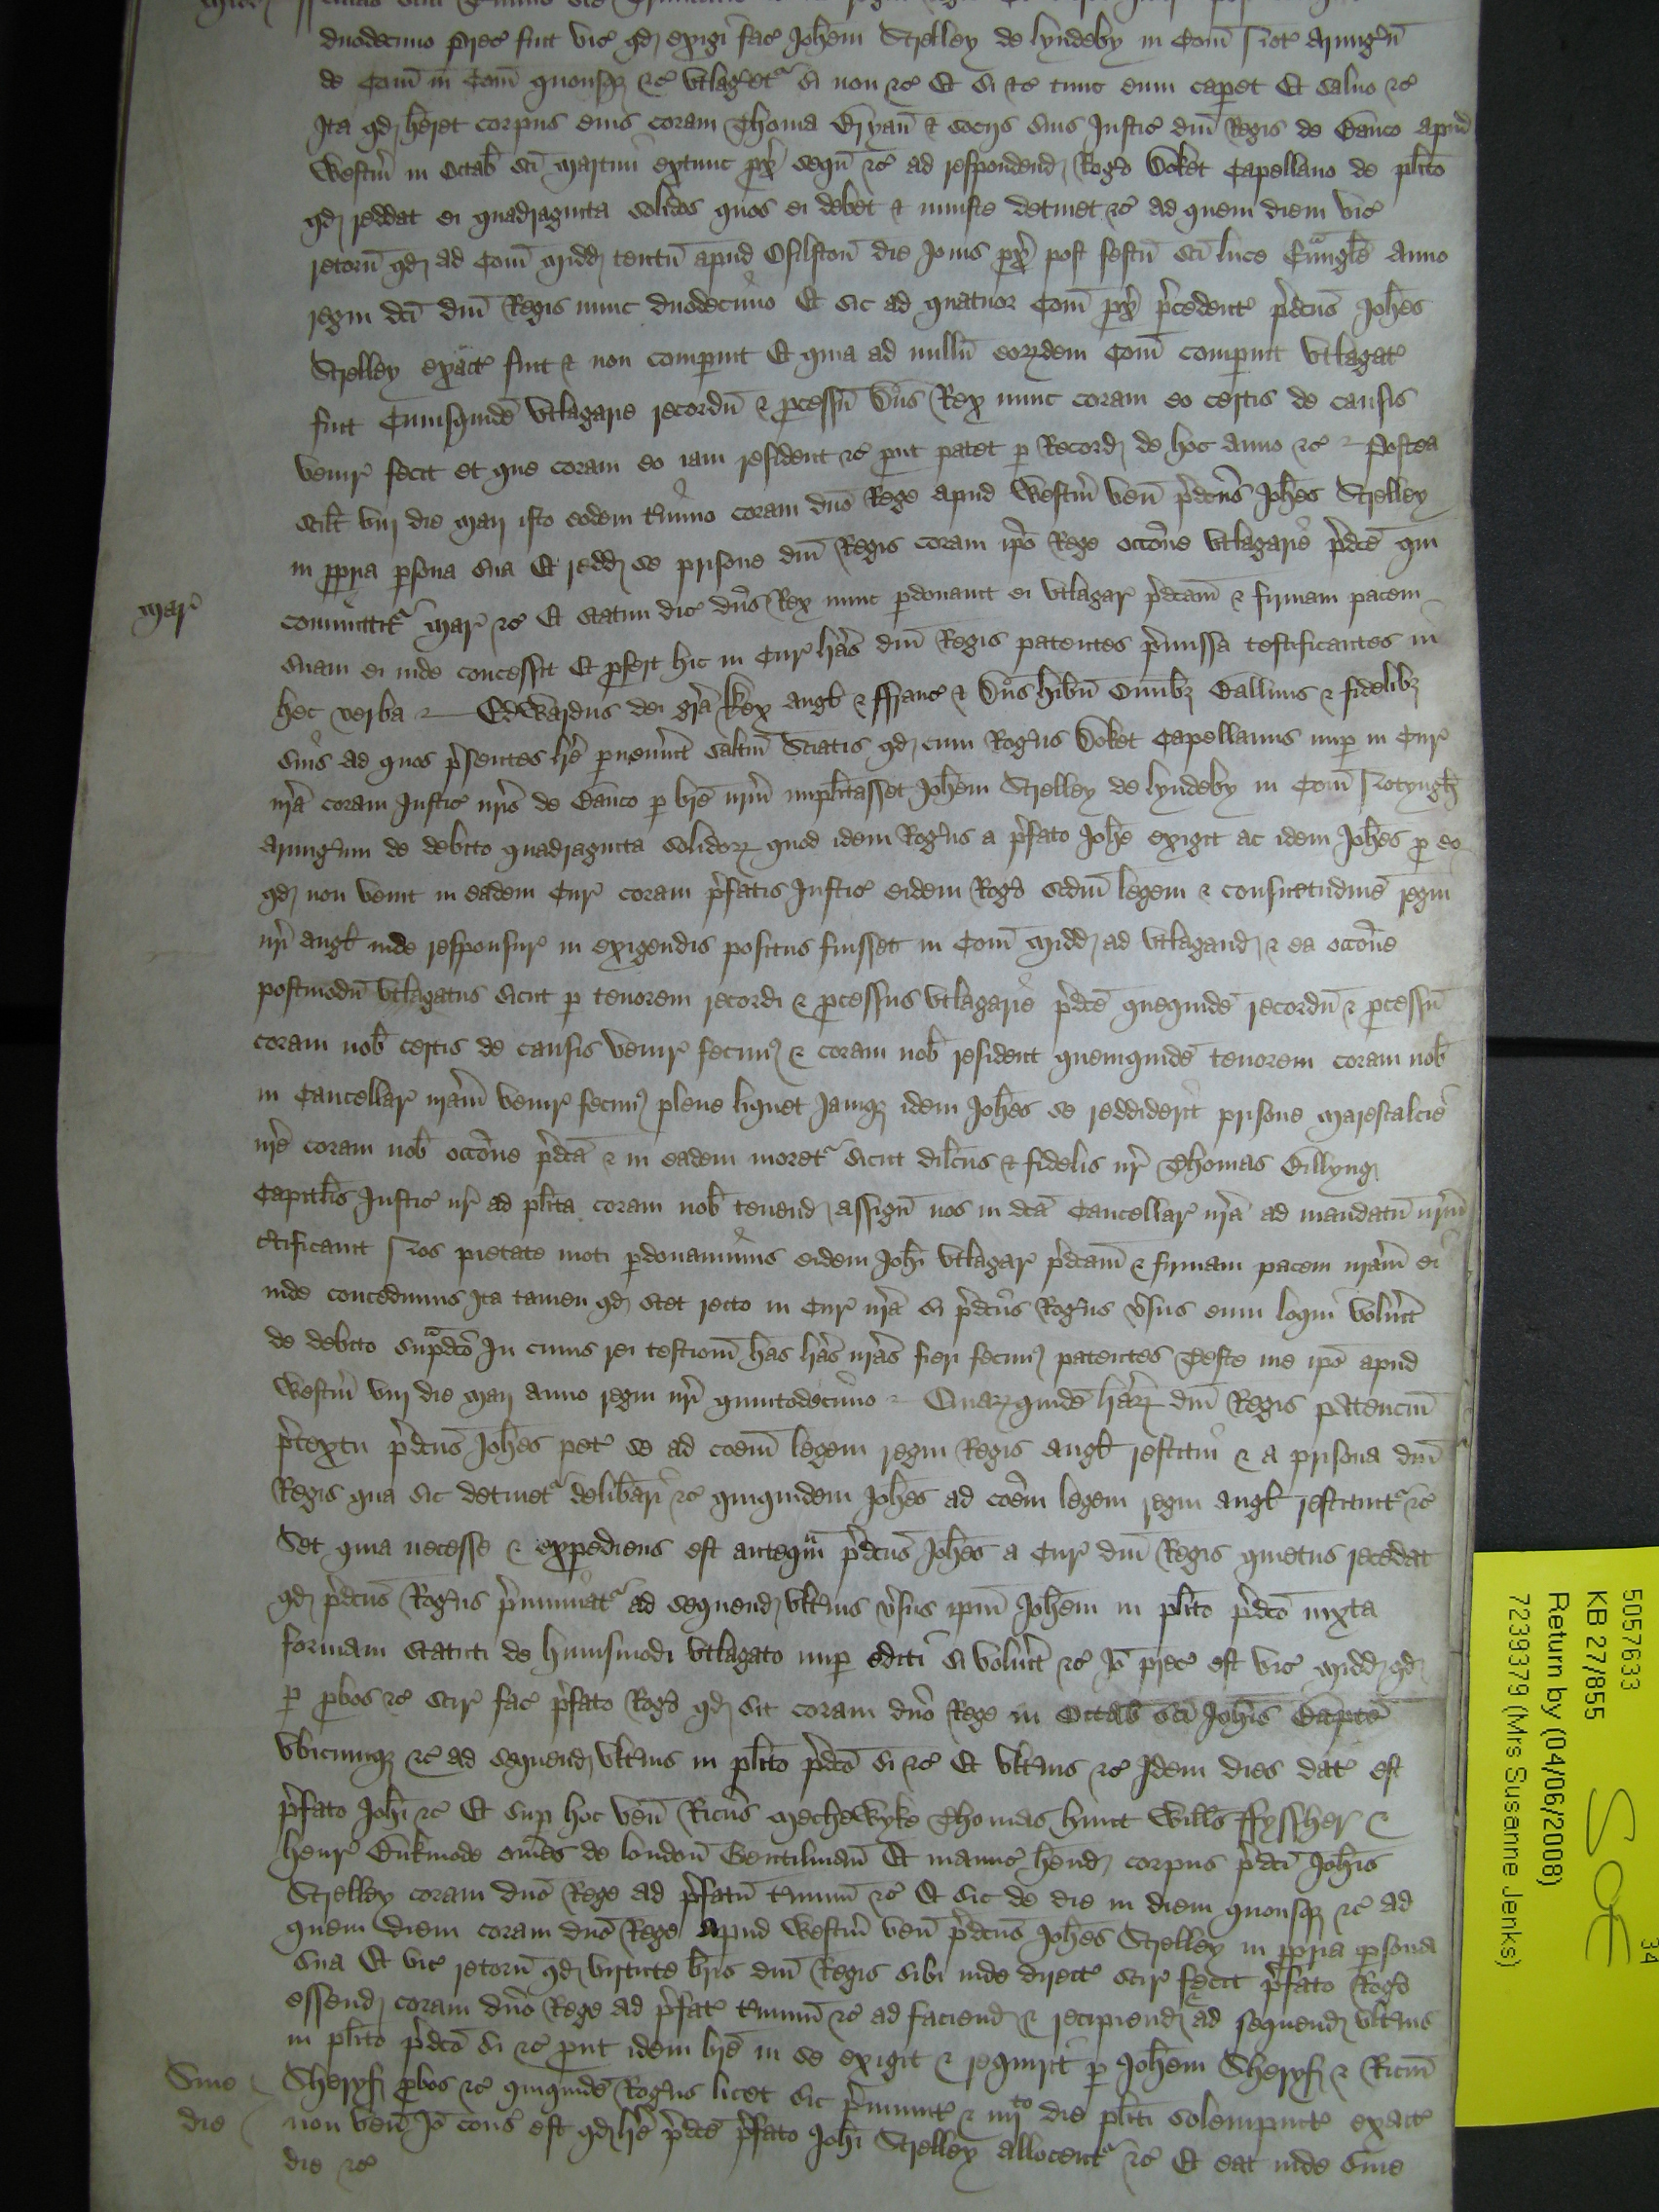 duodecimo prec fuit vic qd exigi fac Johem Strelley de lyndeby in Com Not Armigu
de Com in Com quousq &c utlaget si non &c Et si &c tunc eum capet Et salvo &c
Ita qd heret corpus eius coram Thoma Bryan & socijs suis Justic dni Regis de Banco apud
Westm in Octab sci Martini extunc px sequ &c ad respondend Rogo Doket Capellano de plito
qd reddat ei quadraginta solidos quos ei debet & iniuste detinet &c ad quem diem vic
retorn qd ad Com Midd tentu apud Osilston die Jovis px post festu sci luce Evangle Anno
regni dci dni Regis nunc duodecimo Et sic ad quatuor Com px precedent predcus Johes
Strelley exact fuit & non compuit Et quia ad nullu eordem Com compuit utlagat
fuit Cuiusquide utlagarie recordu & pcessu Dns Rex nunc coram eo certis de causis
venir fecit et que coram eo iam resident &c put patet p Record de hoc anno &c Postea
scilt viij die Maij isto eodem tmino coram dno Rege apud Westm ven predcus Johes Strelley
in ppria psona sua Et redd se prisone dni Regis coram ipo Rege occone utlagarie predce qui
Mar
committit Mar &c Et statim dic dns Rex nunc pdonavit ei utlagar predcam & firmam pacem
suam ei inde concessit Et pfert hic in Cur lras dni Regis patentes premissa testificantes in
hec verba Edwardus dei gra Rex angl & ffranc & Dns hibn Omibz Ballivis & fidelibz
suis ad quos presentes lre pvenerint saltm Sciatis qd cum Rogus Doket Capellanus nup in Cur
nra coram Justic nris de Banco p bre nrm implitasset Johem Strelley de lyndeby in Com Notyngh
Armigum de debito quadraginta solidor quod idem Rogus a prefato Johe exigit ac idem Johes p eo
qd non venit in eadem Cur coram prefatis Justic eidem Rogo scdm legem & consuetudine regni
nri angl inde responsur in exigendis positus fuisset in Com Midd ad utlagand & ea occone
postmodu utlagatus sicut p tenorem recordi & pcessus utlagarie predce quequide recordu & pcessu
coram nob certis de causis venir fecim & coram nob resident quemquide tenorem coram nob
in Cancellar nram venir fecim plene liquet Jamqz idem Johes se reddiderit prisone Marescalcie
nre coram nob occone predca & in eadem moret sicut dilcus & fidelis nr Thomas Billyng
Capitlis Justic nr ad plita coram nob tenend assign nos in dca Cancellar nra ad mandatu nrm
ctificavit Nos pietate moti pdonavimus eidem Johi utlagar predcam & firmam pacem nram ei
inde concedimus Ita tamen qd stet recto in Cur nra si predcus Rogus vsus eum loqui volut
de debito supdco In cuius rei testiom has lras nras fieri fecim patentes Teste me ipo apud
Westm viij die Maij anno regni nri quintodecimo Quarquide lrar dni Regis patenciu
pretextu predcus Johes pet se ad coem legem regni Regis angl restitui & a prisona dni
Regis qua sic detinet delibari &c quiquidem Johes ad coem legem regni angl restituit &c
Set quia necesse & expediens est anteqm predcus Johes a Cur dni Regis quietus recedat
qd predcus Rogus premuniat ad sequend ultius vsus ipm Johem in plito predco iuxta
formam statuti de huiusmodi utlagato nup editi si volut &c Jo prec est vic Midd qd
p pbos &c scir fac prefato Rogo qd sit coram dno Rege in Octab sci Johis Bapte
ubicumqz &c ad sequend ultius in plito predco si &c Et ultius &c Idem dies dat est
prefato Johi &c Et sup hoc ven Ricus Mechewyke Thomas hunt Wills ffyssher &
henr Enkmode omes de london Gentilman Et manuc hend corpus predci Johis
Strelley coram dno Rege ad prefatu tminu &c Et sic de die in diem quousqz &c ad
quem diem coram dno Rege apud Westm ven predcus Johes Strelley in ppria psona
sua Et vic retorn qd virtute bris dni Regis sibi inde direct scir fecit prefato Rogo
essend coram dno Rege ad prefat tminu &c ad faciend & recipiend & ad sequend ultius
in plito predco si &c put idem bre in se exigit & requirit p Johem Sheryf & Ricm
Sine
die
Sheryf pbos &c quiquide Rogus licet sic premunit & iiijto die pliti solempnit exact
non ven Jo cons est qd lre predce prefato Johi Strelley allocent &c Et eat inde sine
die &c
5057633
KB 27/855
Return by (04/06/2008)
7239379 (Mrs Susanne Jenks)
34